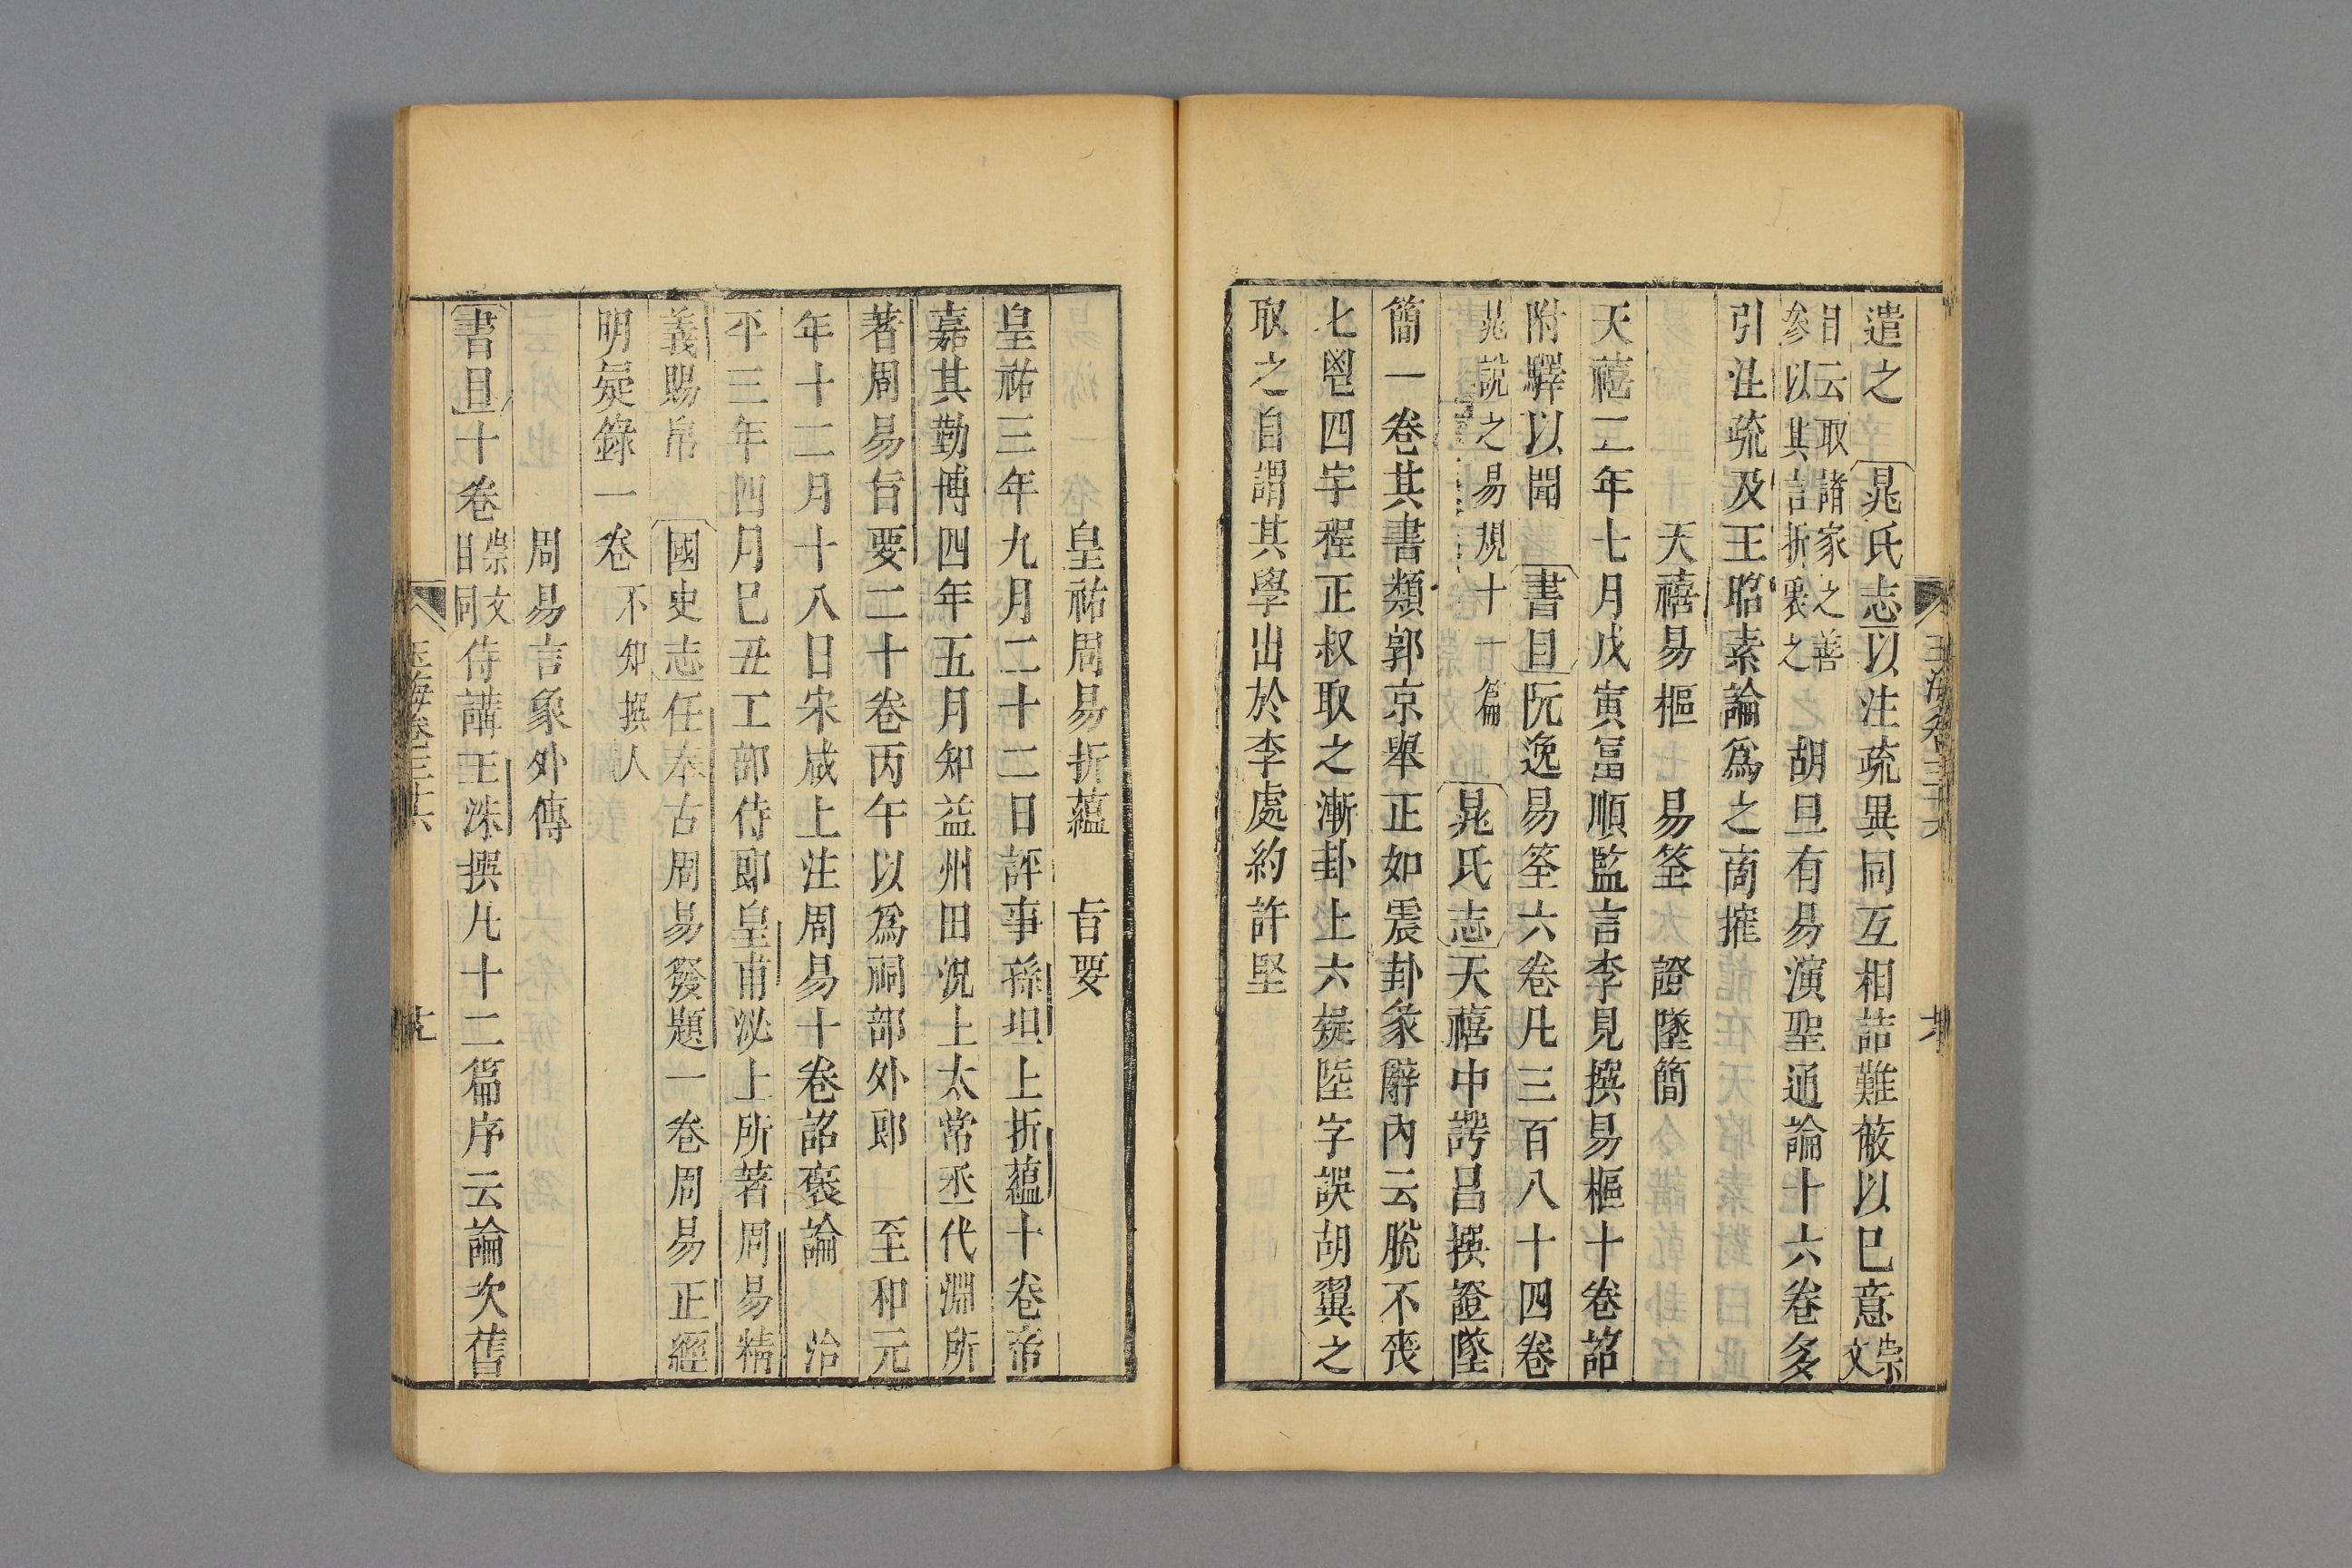 遣之　晁氏志以注疏異同互相詰難蔽以巳意崇文
目云取諸家之善參以其言折衷之　胡旦有易演聖通論十六卷多
引注疏及王昭素論爲之商搉
天禧易樞　易筌　證墜簡
天禧二年七月戊寅富順監言李見撰易樞十卷詔
附驛以聞　書目阮逸易筌六卷凡三百八十四卷
晁說之易規十一篇　晁氏志天禧中諤昌撰證墜
簡一卷其書類郭京舉正如震卦彖辭內云脫不喪
匕鬯四字程正叔取之漸卦上六疑陸字誤胡翼之
取之自謂其學出於李處約許堅
皇祐周易折蘊　旨要
皇祐三年九月二十二日評事孫坦上折蘊十卷帝
嘉其勤博四年五月知益州田況上太常丞代淵所
著周易旨要二十卷丙午以爲祠部外郎　至和元
年十二月十八日宋咸上注周易十卷詔褒論　治
平三年四月巳丑工部侍郎皇甫泌上所著周易精
義賜帛　國史志任奉古周易發題一卷周易正經
明疑錄一卷不知撰人
周易言象外傳
書目十卷崇文目同侍講王洙撰凡十二篇序云論次舊
玉海卷三十六